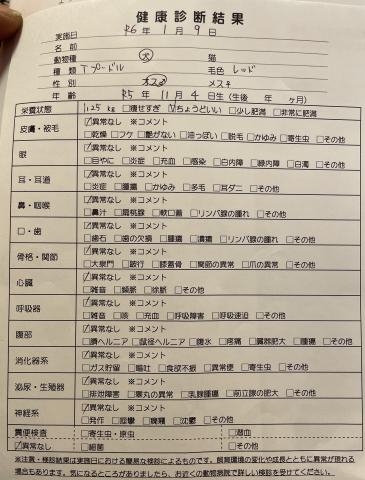 健康診断結果
実施日 R6年 1月 9日
名前
動物種 犬 猫
種類 Tプードル 毛色 レッド
性別 オス♂ メス♀
年齢 R5年11月4日生(生後 年 ヶ月)
栄養状態 1.25 kg □痩せすぎ ☑ちょうどいい □少し肥満 □非常に肥満
皮膚・被毛 ☑異常なし ※コメント
□乾燥 □フケ □艶がない □油っぽい □脱毛 □かゆみ □寄生虫 □その他
眼 ☑異常なし ※コメント
□目やに □炎症 □充血 □感染 □白内障 □緑内障 □白濁 □その他
耳・耳道 ☑異常なし ※コメント
□炎症 □腫瘍 □かゆみ □多毛 □耳ダニ □その他
鼻・咽喉 ☑異常なし ※コメント
□鼻汁 □扁桃腺 □軟口蓋 □リンパ腺の腫れ □その他
口・歯 ☑異常なし ※コメント
□歯石 □歯の欠損 □腫瘍 □潰瘍 □リンパ腺の腫れ □その他
骨格・関節 ☑異常なし ※コメント
□大泉門 □跛行 □膝蓋骨 □関節の異常 □爪の異常 □その他
心臓 ☑異常なし ※コメント
□雑音 □頻脈 □徐脈 □その他
呼吸器 ☑異常なし ※コメント
□雑音 □咳 □充血 □呼吸障害 □呼吸速迫 □その他
腹部 ☑異常なし ※コメント
□臍ヘルニア □鼠径ヘルニア □腹水 □疼痛 □臓器肥大 □腫瘍 □その他
消化器系 ☑異常なし ※コメント
□ガス貯留 □嘔吐 □食欲不振 □異常便 □寄生虫 □その他
泌尿・生殖器 ☑異常なし ※コメント
□排泄障害 □睾丸の異常 □乳腺腫瘍 □前立腺の肥大 □その他
神経系 ☑異常なし ※コメント
□発作 □痙攣 □麻痺 □沈鬱 □その他
糞便検査 □寄生虫・原虫 □潜血
☑異常なし □細菌 □その他
※注意・検診結果は実施日における簡易な検診によるものです。飼育環境の変化や成長とともに異常が現れる
場合もあります。気になるところがありましたら、お近くの動物病院で詳しい検診を受けてください。